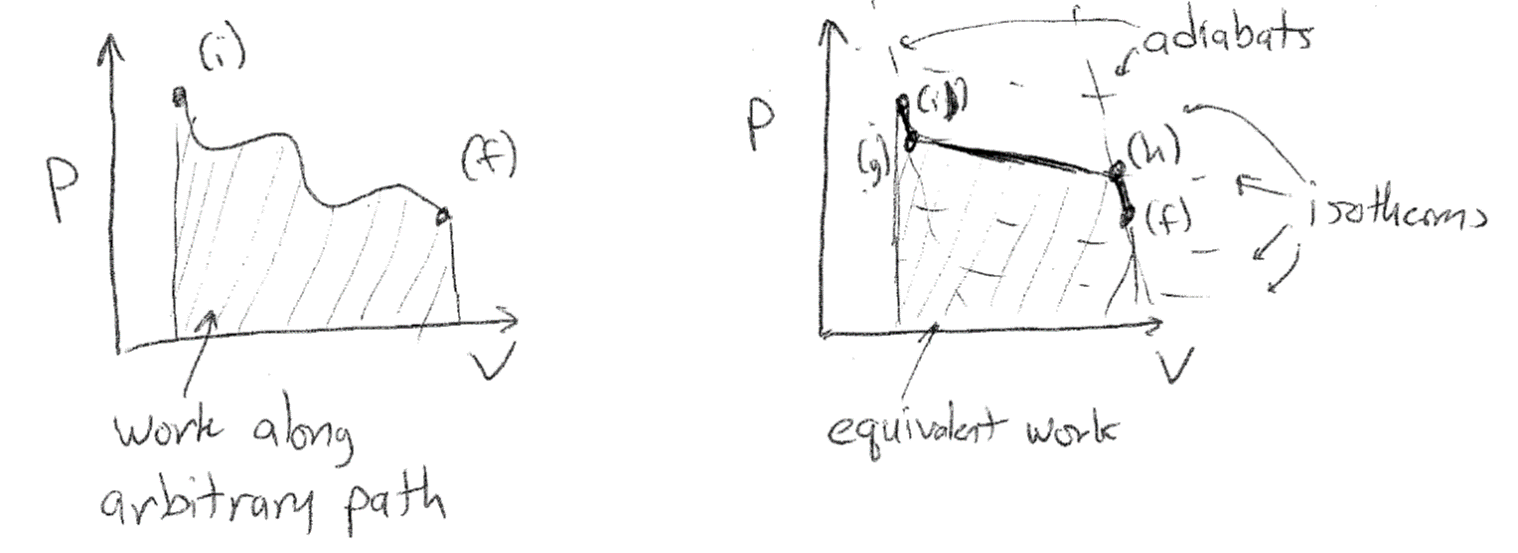 (i)
(f)
P
V
work along
arbitrary path
adiabats
(i)
P
(g)
(h)
(f)
isotherms
V
equivalent work